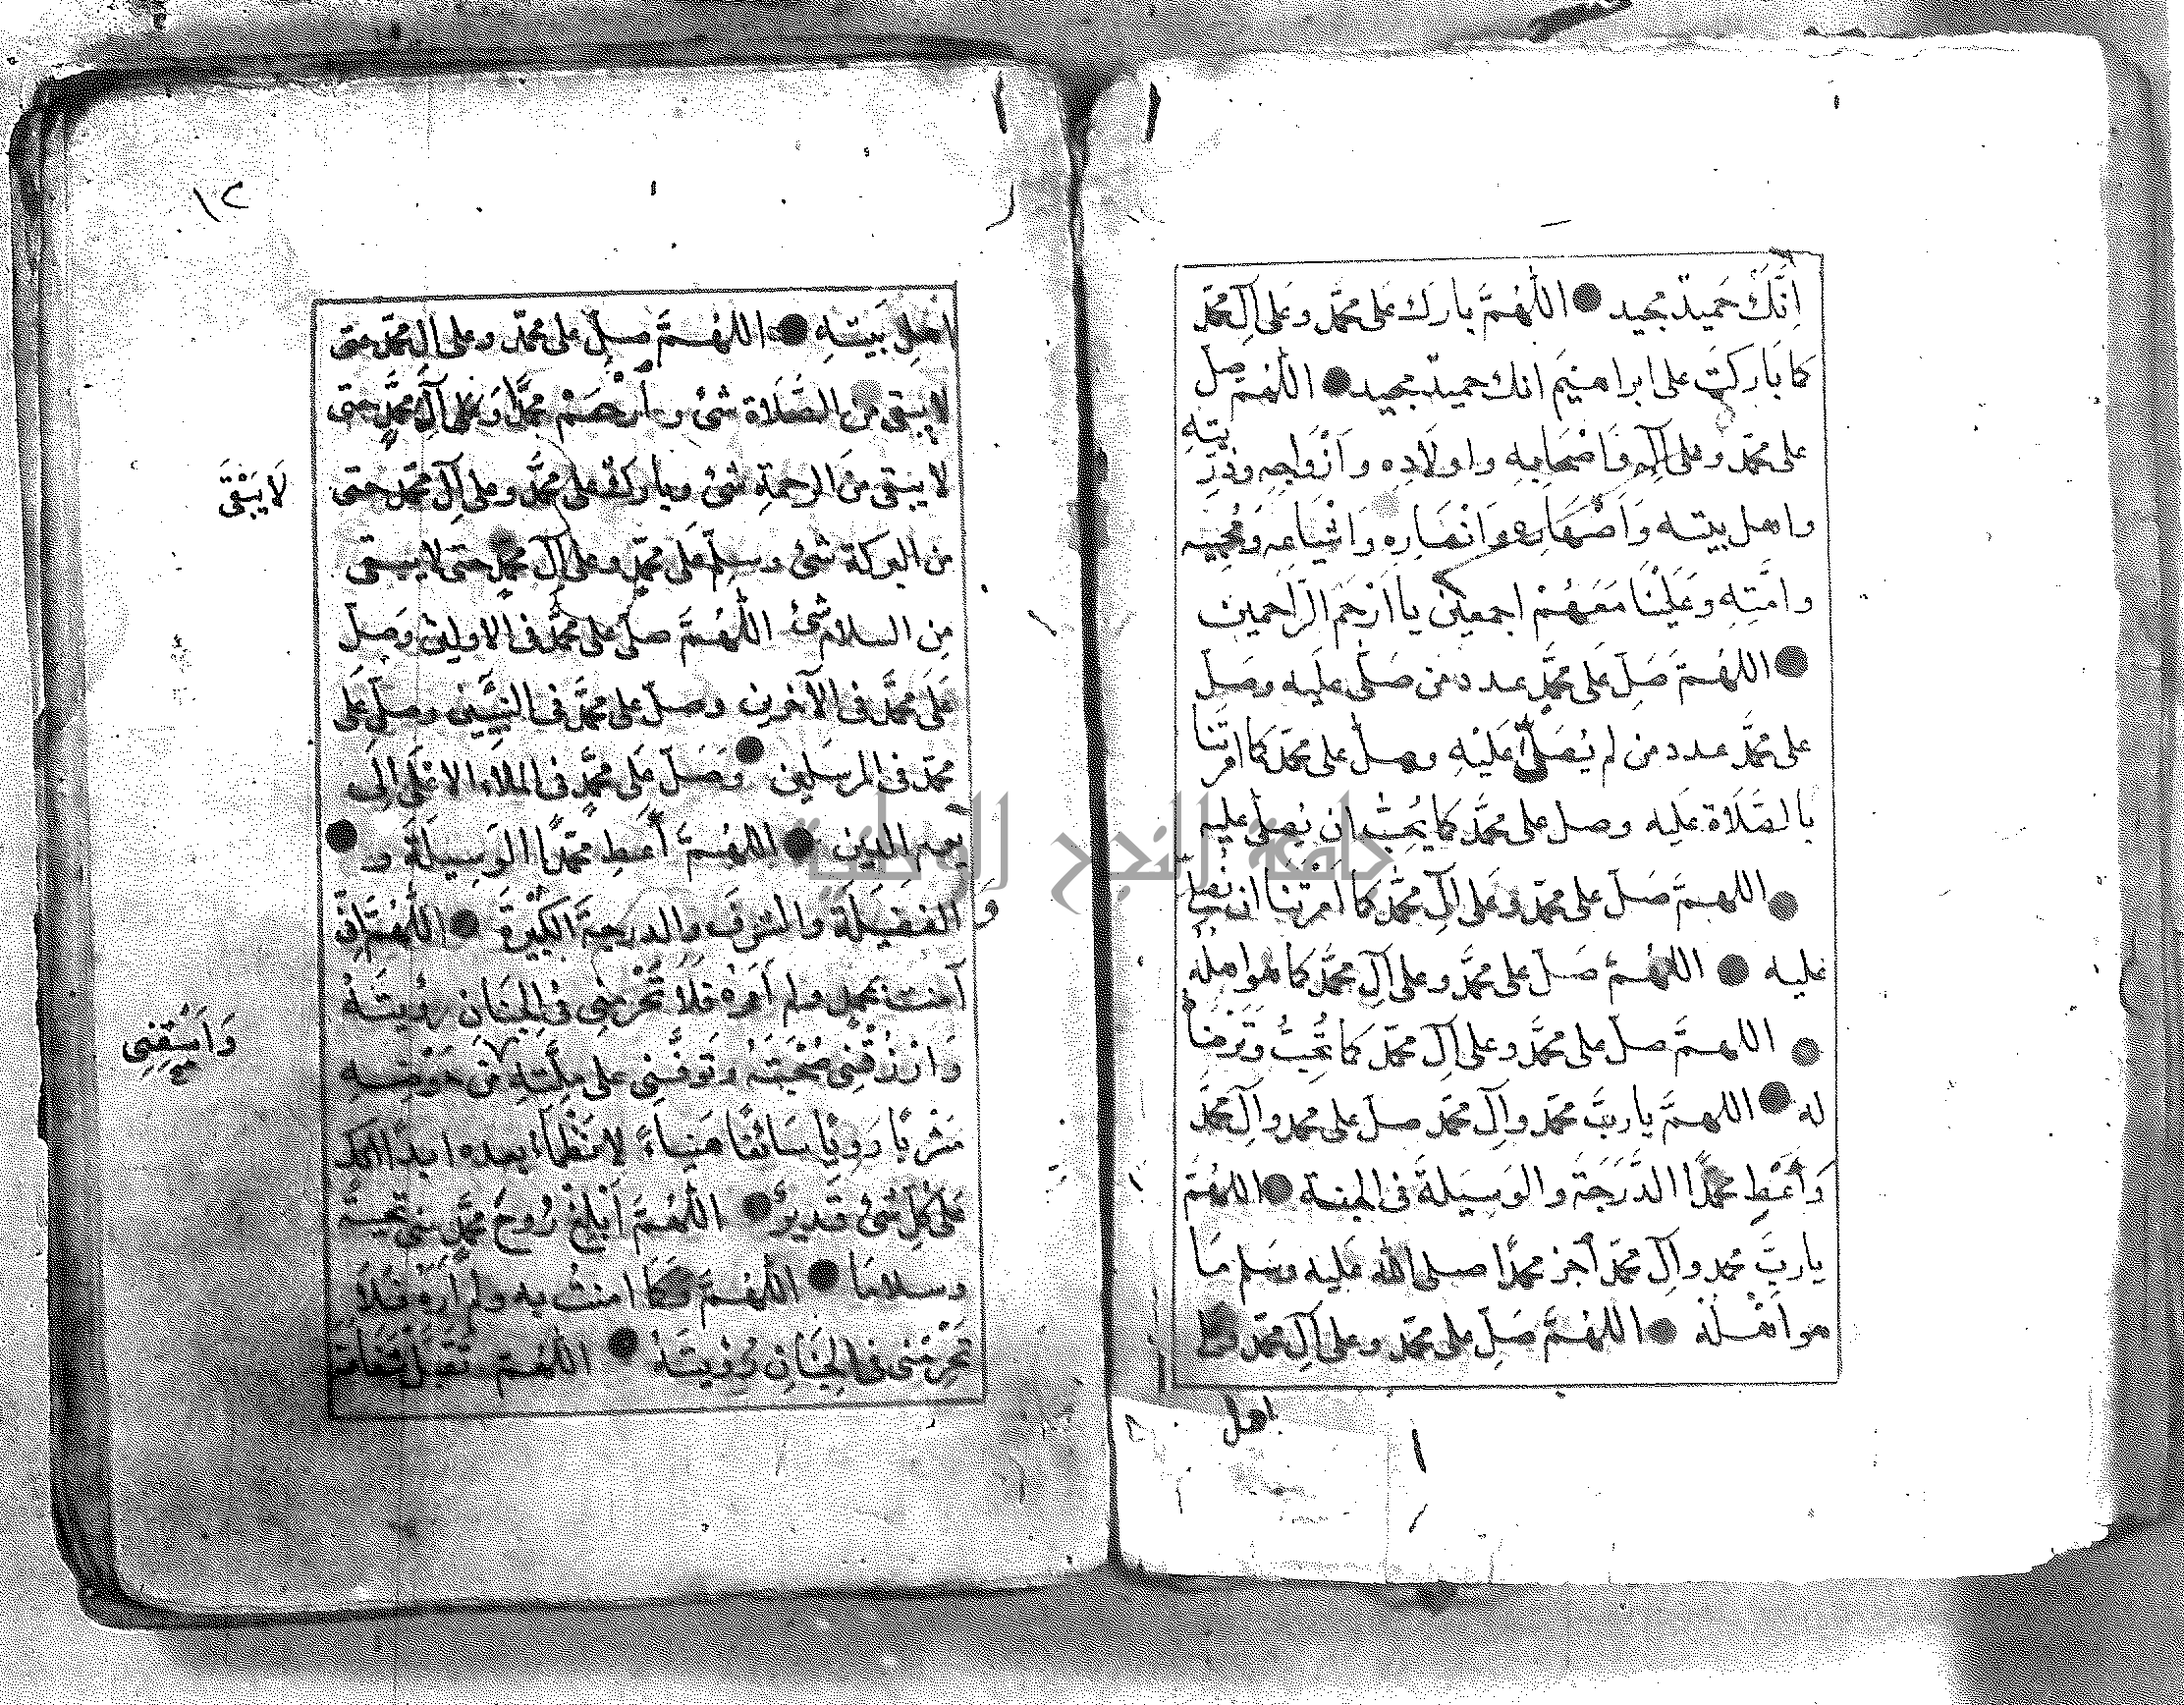 اِنَّكَ حَمِيدٌ مجيد اللّٰهُمَّ بارك على محمَّد وعَلى اٰلِ محمّد
كما بَاركتَ على ابراهيمَ انك حميدٌ مجيد اللهُمّ صلِّ
على محمّد وعلى اٰلِهِ وَاَصْحَابِهِ واولَادِهِ وَاَزْوَاجِهِ وذُرِّ يّتِهِ
واهل بيته وَاَصْهَارِهِ وَاَنْصَارِهِ وَاَشْيَاعِهِ وَمُحِبِّيهِ
وامَّتِهِ وعَلَيْنَا مَعَهُمْ اجمعين يا اَرْحَمَ الرَّاحمين
اللهُمّ صَلِّ عَلى محمَّدٍ عدد من صَلّى عليه وصَلِّ
على محمَّد عدد من لم يُصَلِّ عَلَيْهِ وصلّ على محمّد كما امرتَنا
بالصَّلَاةِ عَلَيه وصل على محمَّد كما يُحِبُّ ان يُصلّى عليه
اللهمَّ صَلّ على محمّد وعَلى اٰلِ محمَّد كما اَمَرْتَنَا ان نُصلِّي
عليه اللهُمَّ صَلّ على محمَّد وعلى اٰلِ محمَّد كما هو اهله
اللهمَّ صلّ على محمَّد وعلى اٰلِ محمّد كما تُحِبُّ وتَرْضَا
له اللهمَّ يا ربَّ محمّد واٰلِ محمّد صلّ على محمد واٰلِ محمَّد
وَأَعْطِ محمدًا الدَّرَجَةَ والوَسِيلةَ في الجنة اللهُمَّ
يا ربَّ محمد واٰلِ محمّد اَجْزِ محمَّدًا صلى الله عليه وسَلم مَا
هو اَهْلُهُ اللهُمَّ صَلِّ على محمّد وعلى اٰلِ محمّد وعلى
اهل
١٢
اَهْلِ بَيتِهِ اللهُمَّ صلِّ على محمّد وعلى اٰلِ محمّد حتى
لا يبقى من الصَّلَاة شئ وارْحَمْ محمَّدًا وَعَلى اٰلِ محمّدٍ حتى
لا يبقى منَ الرحمةِ شئ وبارك على محمَّد وعلى اٰلِ محمّد حتى
لَا يَبْقَى
من البركة شئ وسلِّم عَلى محمّدٍ وعلى اٰلِ محمَّد حتى لا يبقى
مِن السلام شئ اللّٰهُمَّ صلّ على محمَّد في الاولين وَصلّ
عَلَى محمَّد في الآخرين وصلّ على محمَّد في النبيِّين وصلّ على
محمّد في المرسَلين وَصَلّ عَلى محمَّدٍ في الملاء الاعْلَى اِلى
يوم الدين اللهمَّ اَعطِ محمّدًا الوَسِيلَةَ و
وَالفضيلَةَ والشرفَ والدرجةَ الكَبِيْرَةَ اللّٰهُمَّ اِنِّي
آمنت بمحمد ولم اَرَهُ فَلَا تَحْرِمْنِي في الجِنَانِ رؤيتَهُ
وَارْزُقْنِي صُحْبَتَهُ وتَوَفَّنِي على مِلَّتِهِ مِن حَوْضِهِ
وَاَسْقِنِي
صح
مَشْرَبًا رَوِيًّا سَائغًا هَنِيًّا لا نظمأ بعده ابدًا انك
عَلى كُلِّ شئ قَديرٌ اللّٰهُمَّ اَبْلِغْ رُوحَ محمَّدٍ مِنّي تحيَّةً
وسلامًا اللّٰهُمَّ وكما امنتُ به ولم اَرَهُ فلا
تَحْرِمْني في الجِنَانِ رُؤيتَهُ اللّٰهُمّ تَقبَّلْ شفاعةَ
جامعة النجاح الوطنية